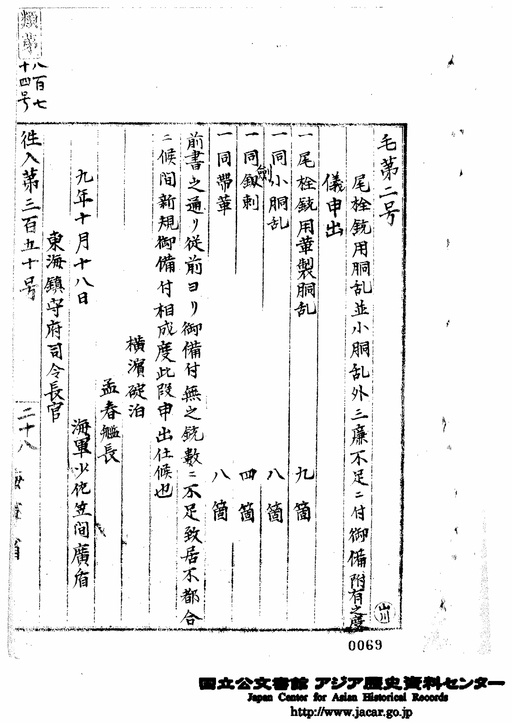 毛第二号
尾栓銃用胴乱並小胴乱外三廉不足ニ付御備附有之度
儀申出
山川
一尾栓銃用革製胴乱 九箇
一同小胴乱 八箇
一同劔刺 四箇
一同帯革 八箇
前書之通リ従前ヨリ御備付無之銃数ニ不足致居不都合
ニ候間新規御備付相成度此段申出仕候也
横濱碇泊
孟春艦長
九年十月十八日 海軍少佐笠間廣盾
東海鎮守府司令長官
往入第三百五十号
二十八
類第
八百七
十四号
0069
国立公文書館 アジア歴史資料センター
Japan Center for Asian Historical Records
http://www.jacar.go.jp